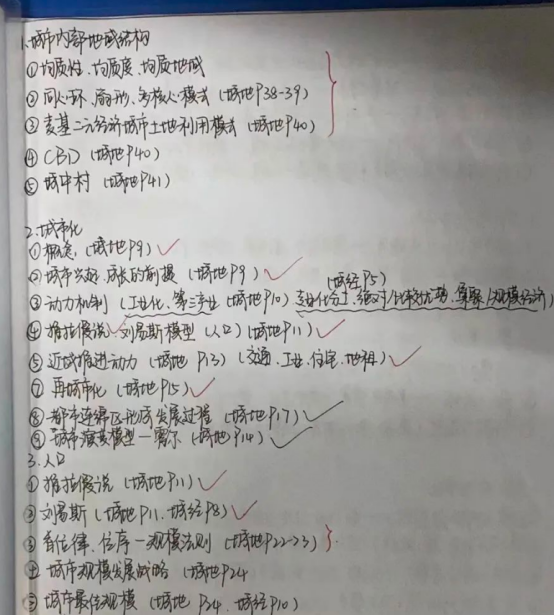 1.城市内部地域结构
①均质性、均质度、均质地域
②同心环、扇形、多核心模式(城地P38-39)
③麦基二元经济城市土地利用模式(城地P40)
④CBD(城地P40)
⑤城中村(城地P41)
2.城市化
①概念(城地P9)
②城市兴起、成长的前提(城地P9)
(城经P5)
③动力机制(工业化、第三产业(城地P10)专业化分工、绝对/比较优势、集聚/规模经济)
④推拉假说、刘易斯模型(人口)(城地P11)
⑤近域推进动力(城地P13)(交通、工业、住宅、地租)
⑦再城市化(城地P15)
⑧都市连绵区形成发展过程(城地P17)
⑨城市演变模型—霍尔(城地P14)
3.人口
①推拉假说(城地P11)
②刘易斯(城地P11、城经P8)
③首位律、位序-规模法则(城地P22-23)
④城市规模发展战略(城地P24
⑤城市最佳规模(城地P24、城经P10)